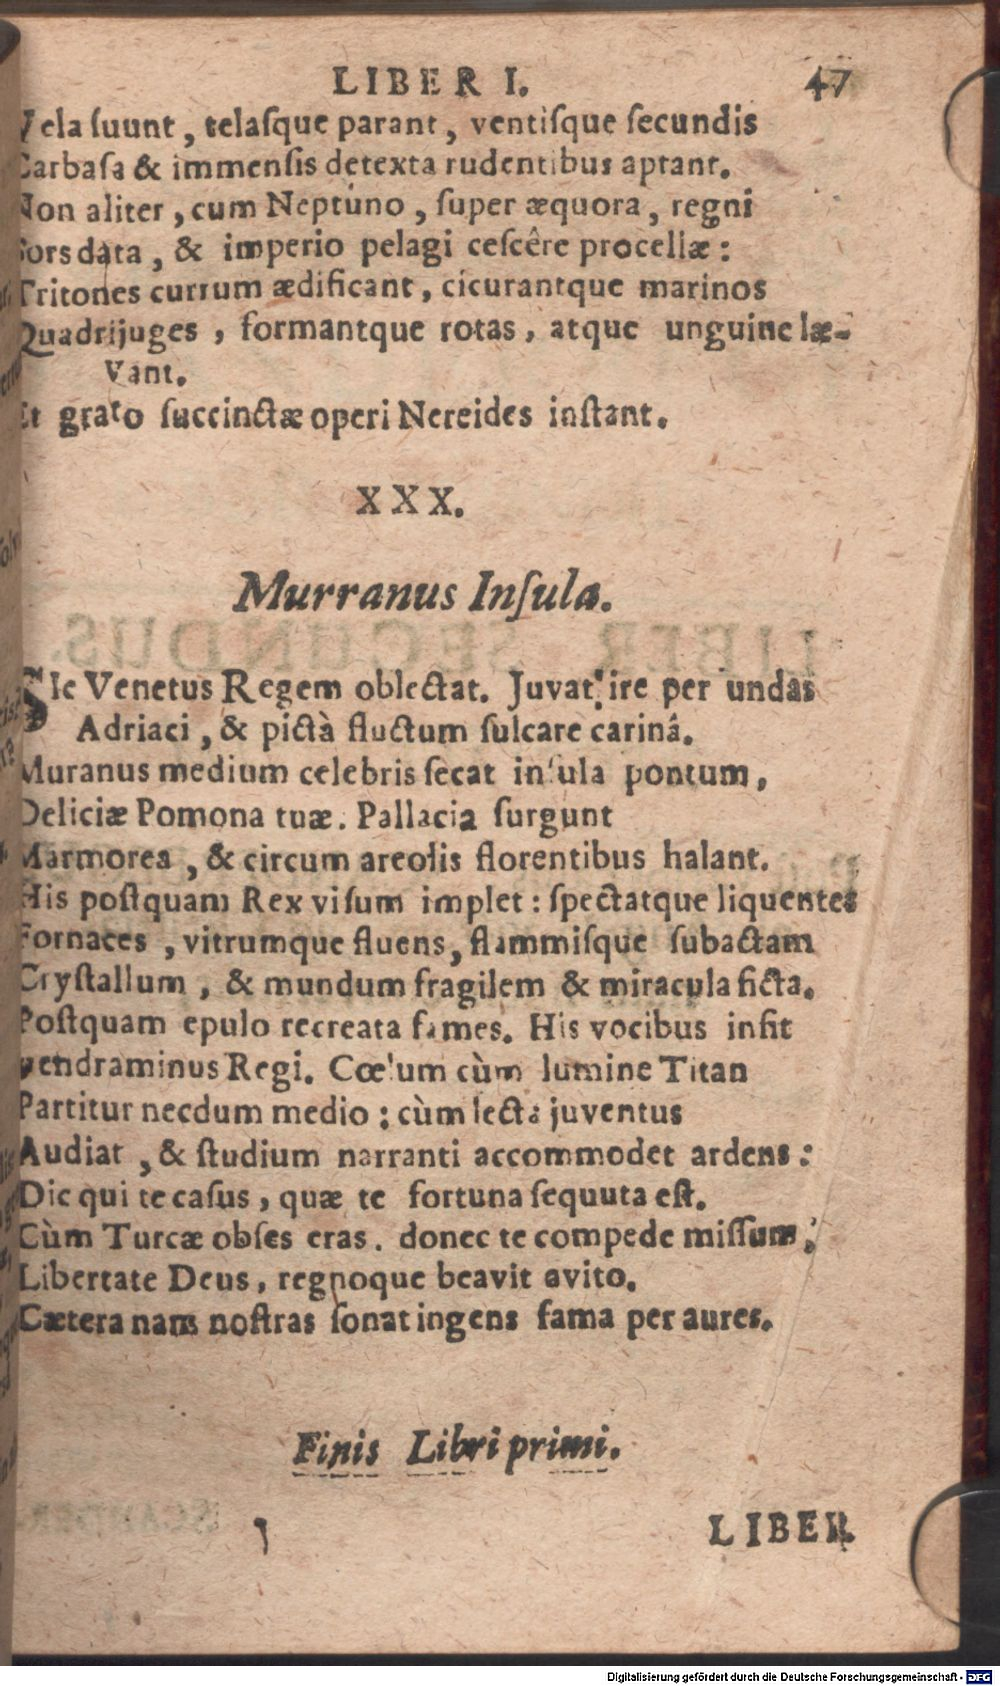 LIBER I. 47
Vela ſuunt, telaſque parant, ventiſque ſecundis
Carbaſa & immenſis detexta rudentibus aptant.
Non aliter, cum Neptúno, ſuper æquora, regni
Sors data, & imperio pelagi ceſcêre procellæ:
Tritones currum ædificant, cicurantque marinos
Quadrijuges, formantque rotas, atque unguine læ-
vant.
Et grato ſuccinctæ operi Nereides inſtant.
XXX.
Murranus Inſula.
SIc Venetus Regem oblectat. Juvat ire per undas
Adriaci, & pictà fluctum ſulcare carinâ.
Muranus medium celebris ſecat inſula pontum,
Deliciæ Pomona tuæ. Pallacia ſurgunt
Marmorea, & circum areolis florentibus halant.
His poſtquam Rex viſum implet: ſpectatque liquentes
Fornaces, vitrumque fluens, flammiſque ſubactam
Cryſtallum, & mundum fragilem & miracula ficta.
Poſtquam epulo recreata fames. His vocibus inſit
Vendraminus Regi. Cœlum cùm lumine Titan
Partitur necdum medio: cùm lecta juventus
Audiat, & ſtudium narranti accommodet ardens:
Dic qui te caſus, quæ te fortuna ſequuta eſt.
Cùm Turcæ obſes eras. donec te compede miſſum,
Libertate Deus, regnoque beavit avito.
Cætera nam noſtras ſonat ingens fama per aures.
Finis Libri primi.
LIBER
Digitalisierung gefördert durch die Deutsche Forschungsgemeinschaft - DFG